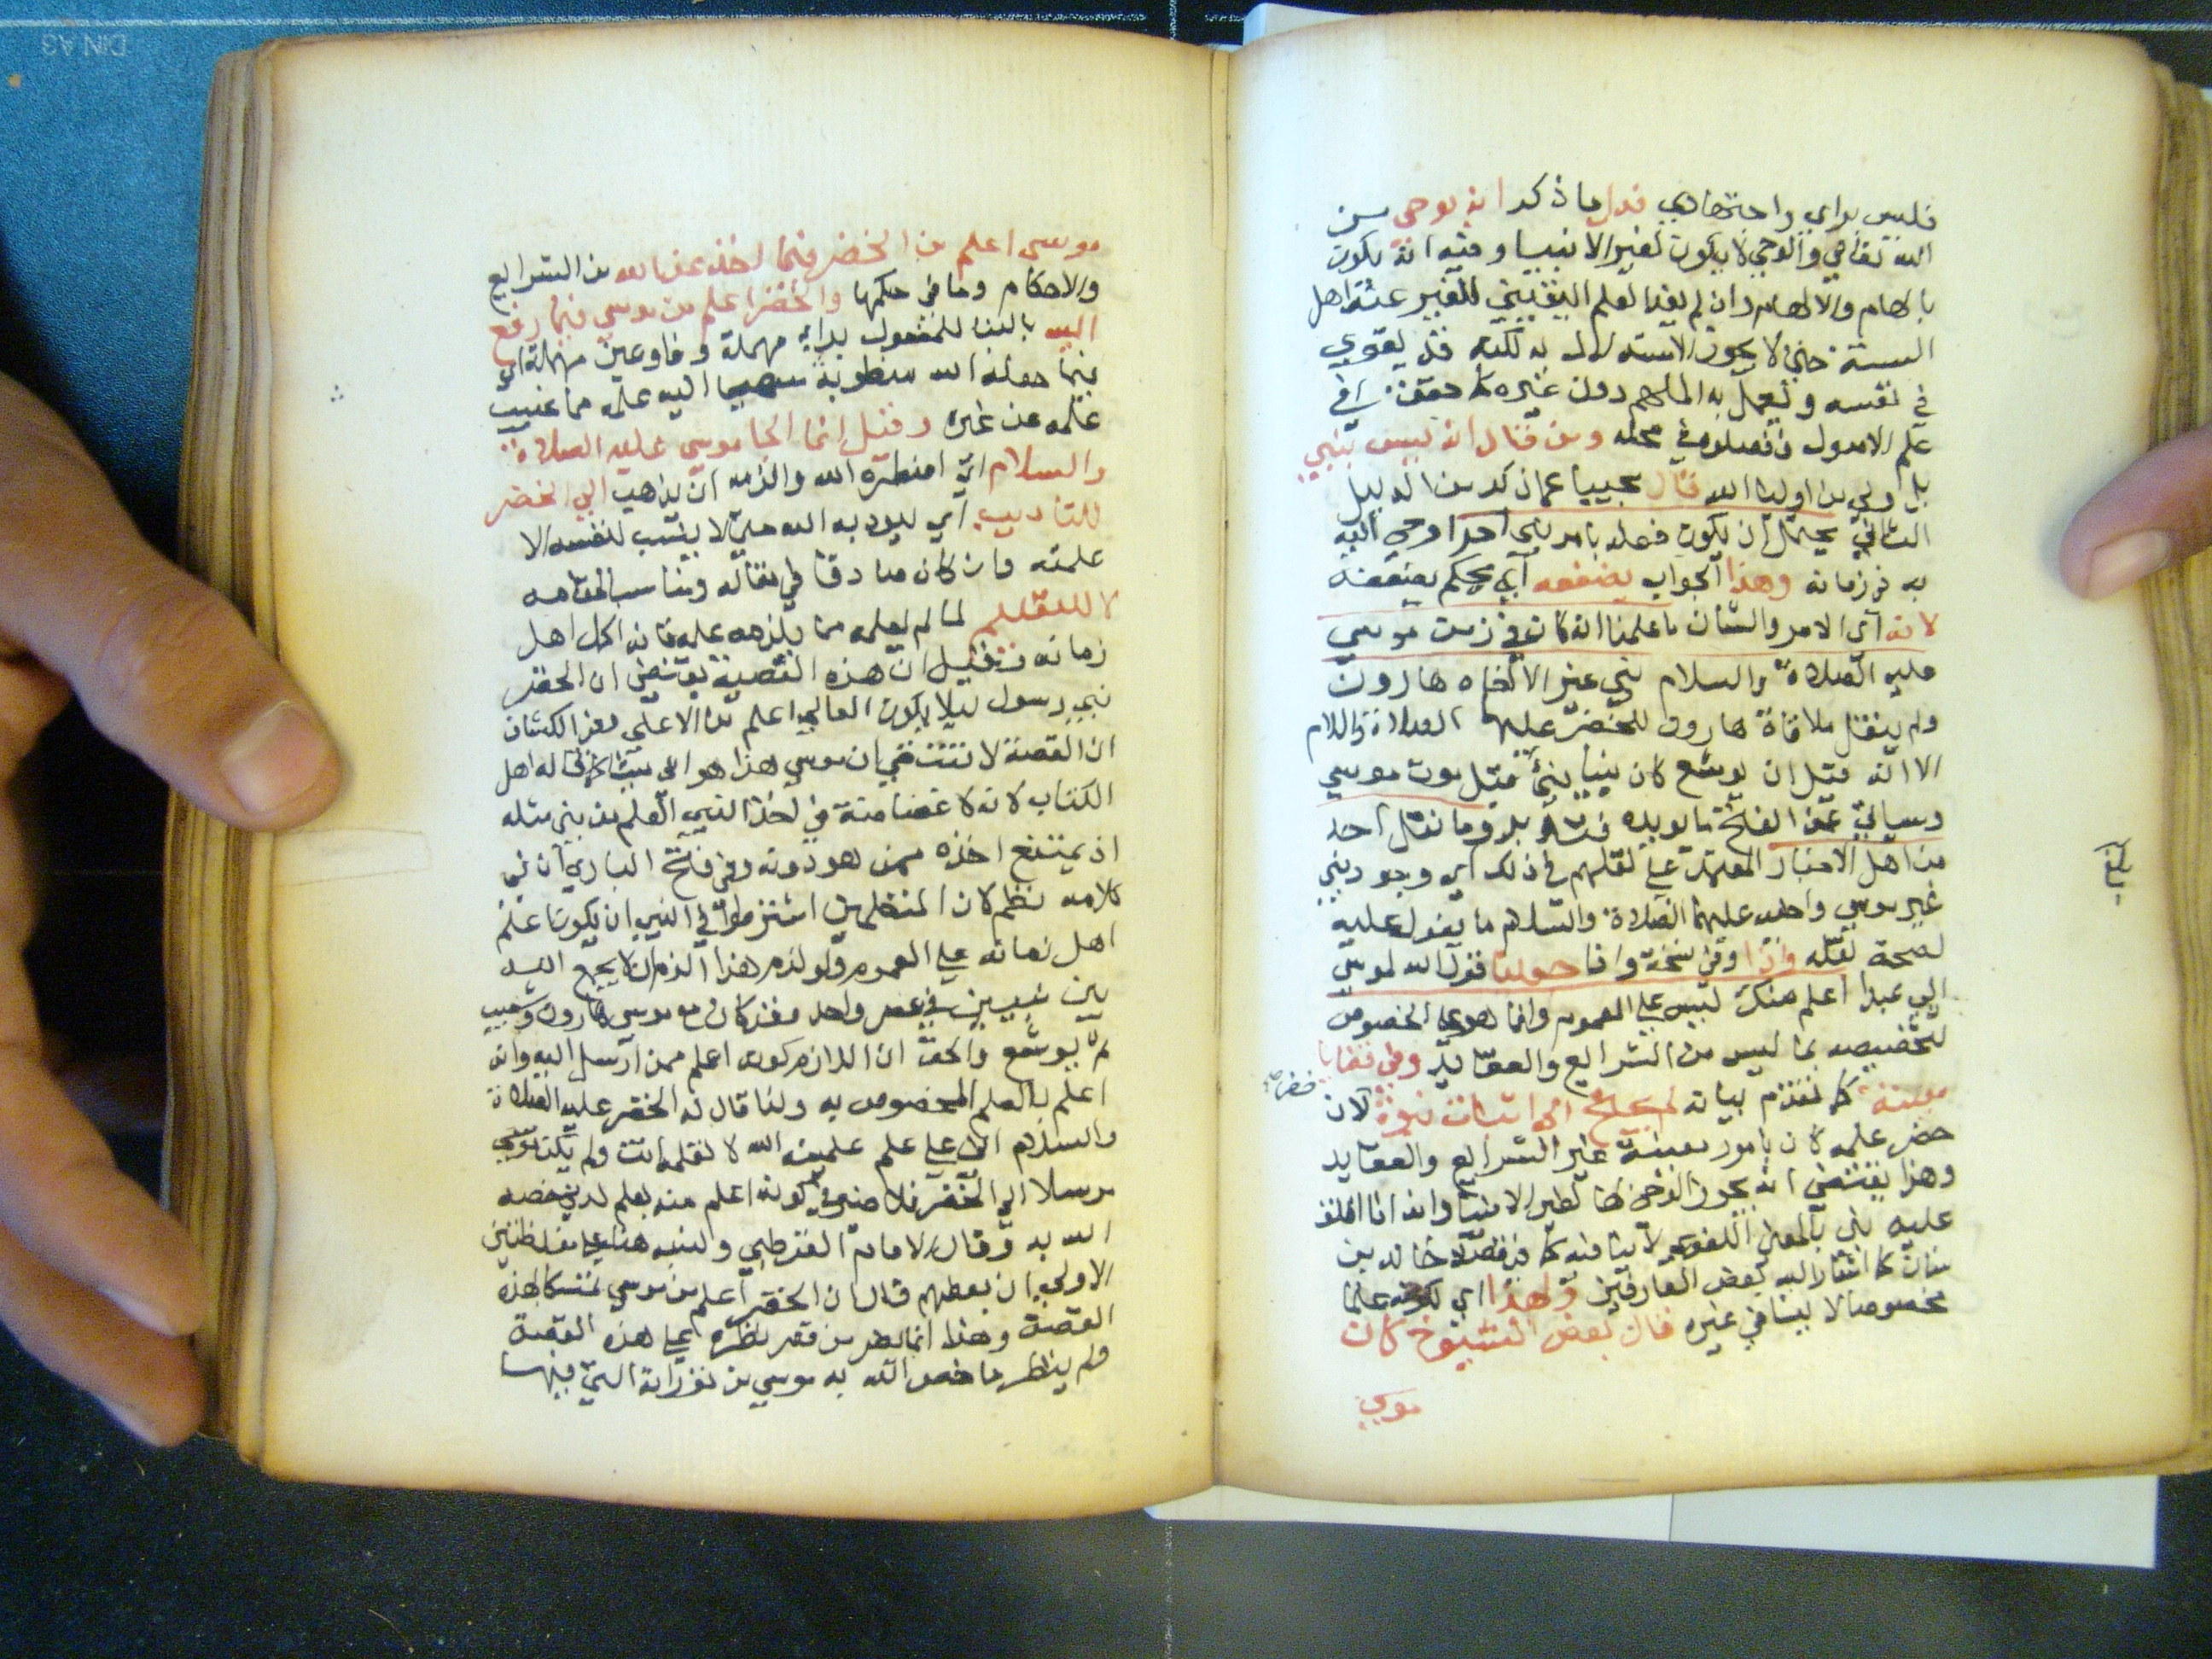 فليس براي واجتهادي فدل ما ذكر انه بوحي من
الله تعالي والوحي لا يكون لغير الانبيا وفيه انه يكون
بالهام والالهام وان لم يفد العلم اليقيني للغير عند اهل
السنة حتي لا يجوز الاستدلال به لكنه قد يقوي
في نفسه ويعمل به الملهم دون غيره كما حققه في
علم الاصول وفصلوه في محله ومن قال انه ليس بنبي
بل ولي من اوليا الله قال مجيبا عما ذكر من الدليل
الثاني يحتمل ان يكون فعله بامر نبي اخر اوحي اليه
به في زمانه وهذا الجواب يضعفه اي يحكم بضعفه
لانه اي الامر والشان ما علمنا انه كان في زمن موسي
عليه الصلاة والسلام نبي غير الا اخاه هارون
ولم ينقل ملاقاة هارون للخضر عليهما الصلاة والسلام
الا انه قيل ان يوشع كان نبيا نبئ قبل موت موسي
وسياتي عن الفتح ما يويده وما نقل احد
من اهل الاخبار المعتمد علي نقلهم في ذلك اي وجود نبي
غير موسي واخيه عليهما الصلاة والسلام ما يعول عليه
لصحة نقله واذا وفي نسخة وانا جعلنا قول الله لموسي
الي عبدا اعلم منك ليس علي العموم وانما هو علي الخصوص
لتخصيصه بما ليس من الشرايع والعقايد وفي قضايا
معينة كما تقدم بيانه لم يحتج الي اثبات نبوة لان
خضر
خضر علمه كان بامور معينة غير الشرايع والعقايد
وهذا يقتضي انه يجوز الوحي لغير الانبيا وانه اذا اطلق
عليه نبي بالمعني اللغوي لا ينافيه كما في قصة خالد بن
سنان كما اشار اليه بعض العارفين ولهذا اي لكونه علما
مخصوصا لا ينافي غيره قال بعض الشيوخ كان
موسي
بلغ
موسي اعلم من الخضر فيما اخذه عن الله من الشرايع
والاحكام وما في حكمها والخضر اعلم من موسي فيما رفع
اليه بالبنا للمفعول براء مهملة وفا وعين مهملة اي
فيما جعله الله اليه علمه مما غيب
علمه عن غيره وقيل انما الجا موسي عليه الصلاة
والسلام اي اضطره الله والزمه ان يذهب الي الخضر
للتاديب اي ليودبه الله حتي لا ينسب لنفسه الا
علمته وان كان صادقا في مقاله ومناسبا لمقامه
لا للتعليم لما لم يعلمه مما يلزمه علمه فانه اكمل اهل
زمانه وقيل ان هذه القصة تقتضي ان الخضر
نبي رسول ليلا يكون العالي اعلم من الاعلي وفي الكشاف
ان القصة لا تقتضي ان موسي هذا هو ابن ميشا كما قاله اهل
الكتاب لانه لا غضاضة في اخذ النبي العلم من نبي مثله
اذ يمتنع اخذه ممن هو دونه وفي فتح الباري ان في
كلامه نظر لان المتكلمين اشترطوا في النبي ان يكون اعلم
اهل زمانه علي العموم ولو لزم هذا الزم ان لا يجمع الله
بين نبيين في عصر واحد وقد كان مع موسي هارون وشعيب
ثم يوشع والحق ان اللازم كونه اعلم ممن ارسل اليه وانه
اعلم بالعلم المخصوص به ولذا قال له الخضر عليه الصلاة
والسلام اني علي علم علمنيه الله لا تعلمه انت ولم يكن موسي
مرسلا الي الخضر فلا ضير في كونه اعلم منه بعلم لدني خصه
الله به وقال الامام القرطبي ولنبه هنا علي مغلطتين
الاولي ان بعضهم قال ان الخضر اعلم من موسي تمسكا بهذه
القصة وهذا انما يصدر من قصر نظره علي هذه القصة
ولم ينظر ما خص الله به موسي من توراته التي فيها